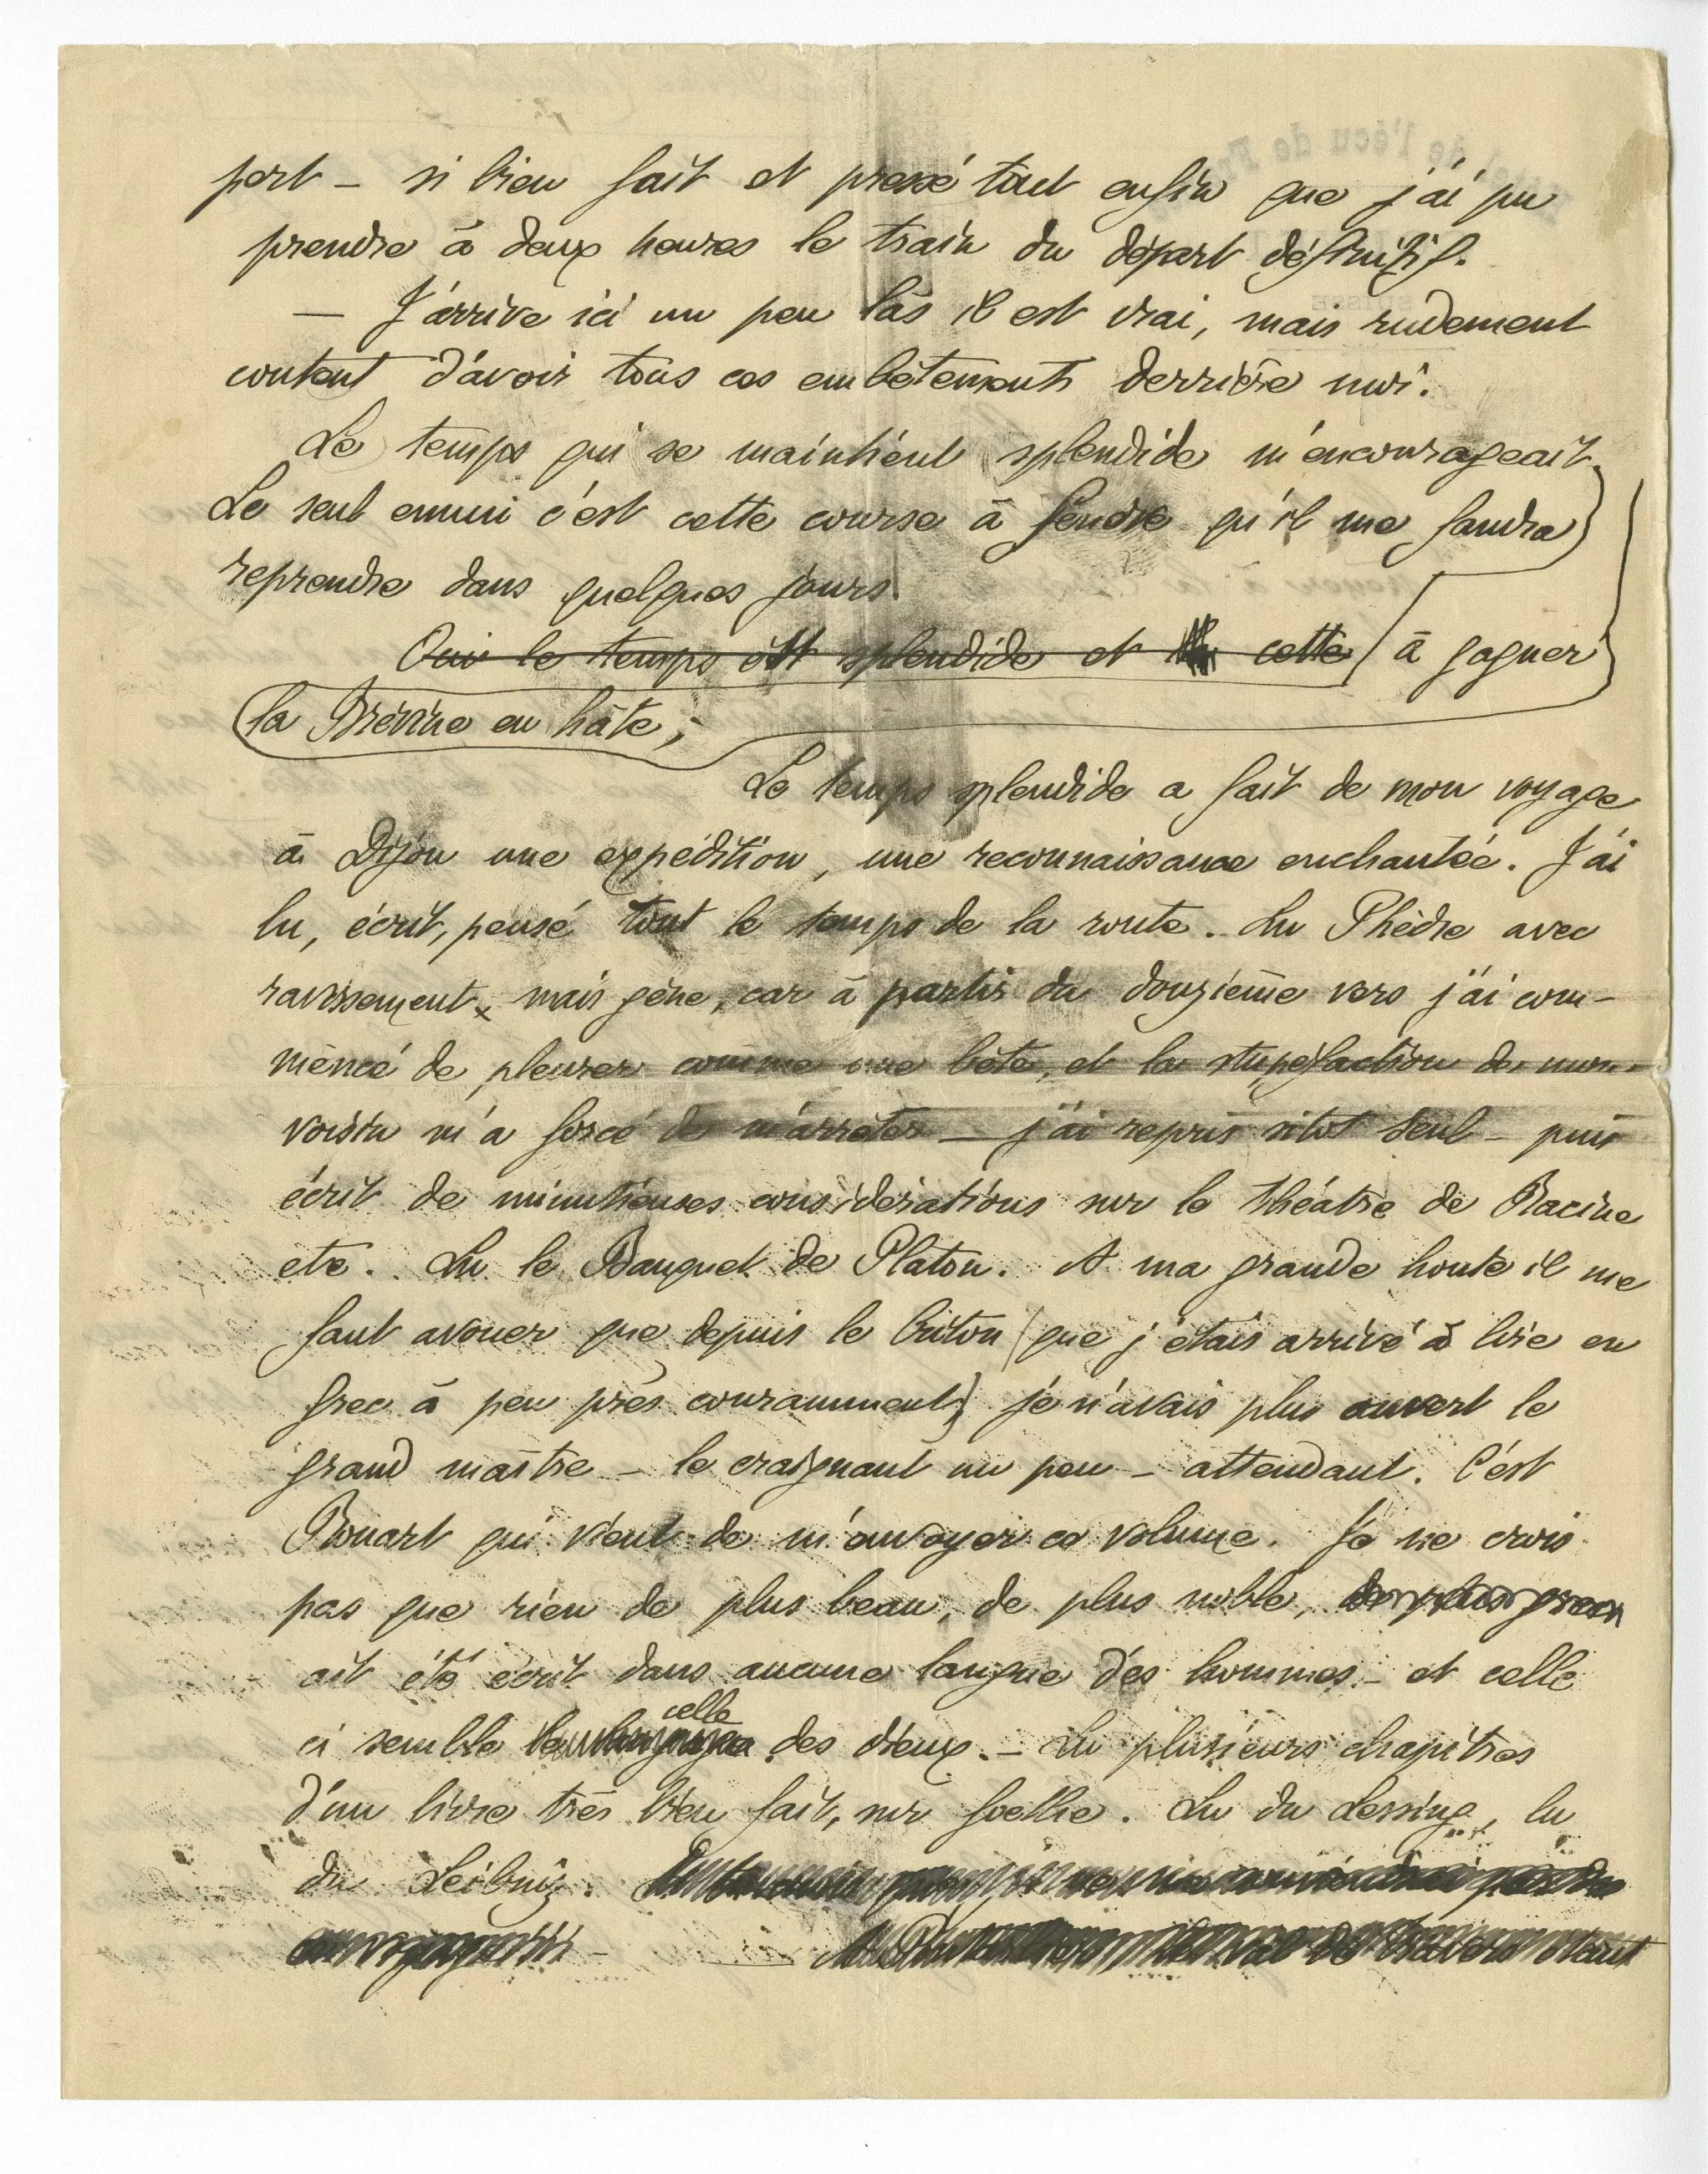 port – si bien fait et pressé tout enfin que j'ai pu
prendre à deux heures le train du départ définitif.
— J'arrive ici un peu las il est vrai, mais rudement
content d'avoir tous ces embêtements derrière moi.
Le temps qui se maintient splendide m'encourageait.
Le seul ennui c'est cette course à qu'il me faudra
reprendre dans quelques jours
Oui le temps est splendide et cette à gagner
la Brévine en hâte;
Le temps splendide a fait de mon voyage
à Dijon une expédition, une reconnaissance enchantée. J'ai
lu, écrit, pensé tout le temps de la route. Lu Phèdre avec
ravissement, mais gêne, car à partir du douzième vers j'ai com-
mencé de pleurer comme une bête, et la stupéfaction de mon
voisin m'a forcé de m'arrêter — j'ai repris sitot seul – puis
écrit de minutieuses considérations sur le théâtre de Racine
etc. Lu le Banquet de Platon. A ma grande honte il me
faut avouer que depuis le Criton (que j'étais arrivé à lire en
grec à peu près couramment) je n'avais plus ouvert le
grand maître – le craignant un peu – attendant. C'est
Rouart qui vient de m'envoyer ce volume. Je ne crois
pas que rien de plus beau, de plus noble,
ait été écrit dans aucune langue des hommes – et celle
ci semble celle des dieux. – Lu plusieurs chapitres
d'un livre très bien fait, sur Goethe. Lu du Lessing, lu
du Leibniz.